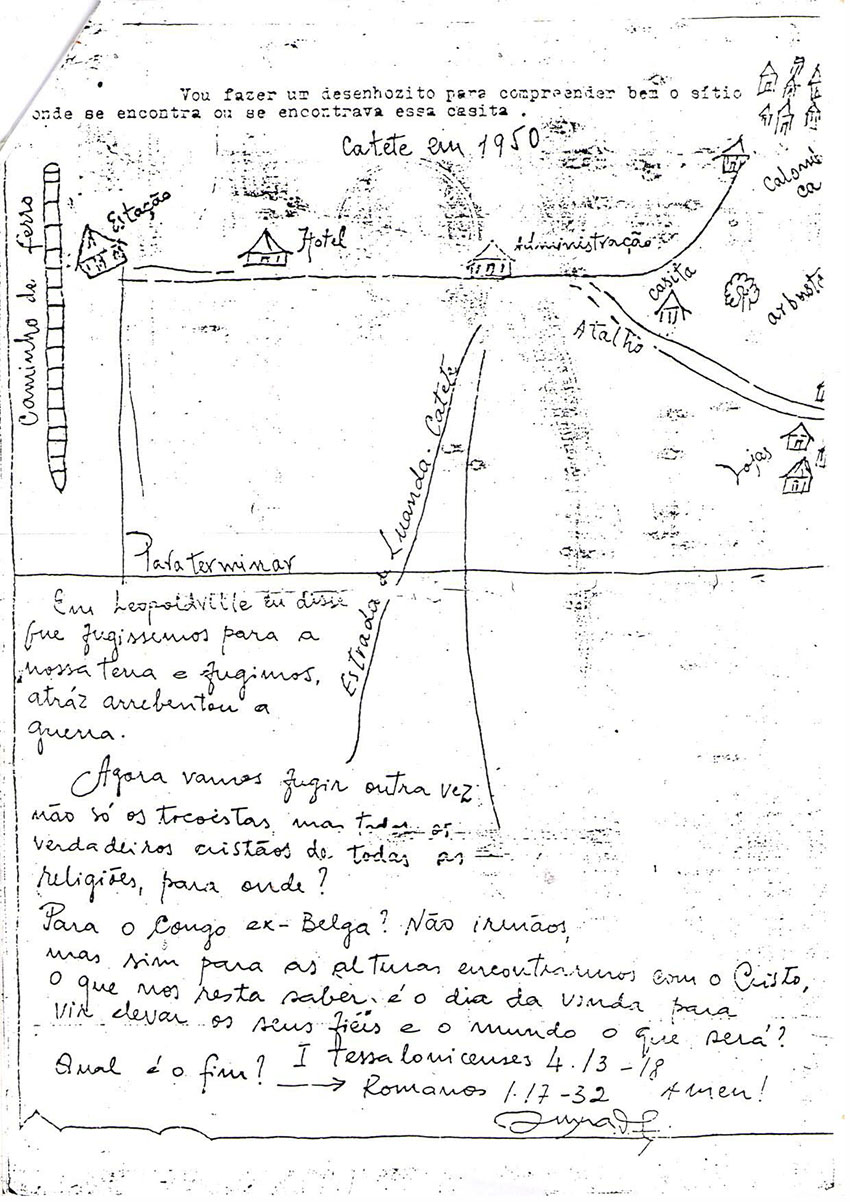 Vou fazer um desenhozito para compreender bem o sítio
onde se encontra ou se encontrava essa casita .
Catete em 1950
Caminho de ferro
Estação
Hotel
Administração
casita
Atalho
Lojas
Estrada de Luanda-Catete
Para terminar
Em Leopoldville eu disse
que fugissemos para a
nossa terra e fugimos,
atráz arrebentou a
guerra.
Agora vamos fugir outra vez
não só os tocoistas mas todos os
verdadeiros cristãos de todas as
religiões, para onde?
Para o Congo ex-Belga? Não irmãos,
mas sim para as alturas encontrarmos com o Cristo,
O que nos resta saber é o dia da vinda para
vir elevar os seus fiéis e o mundo o que será?
Qual é o fim? I Tessalonicenses 4.13-18
Romanos 1.17-32 Amen!